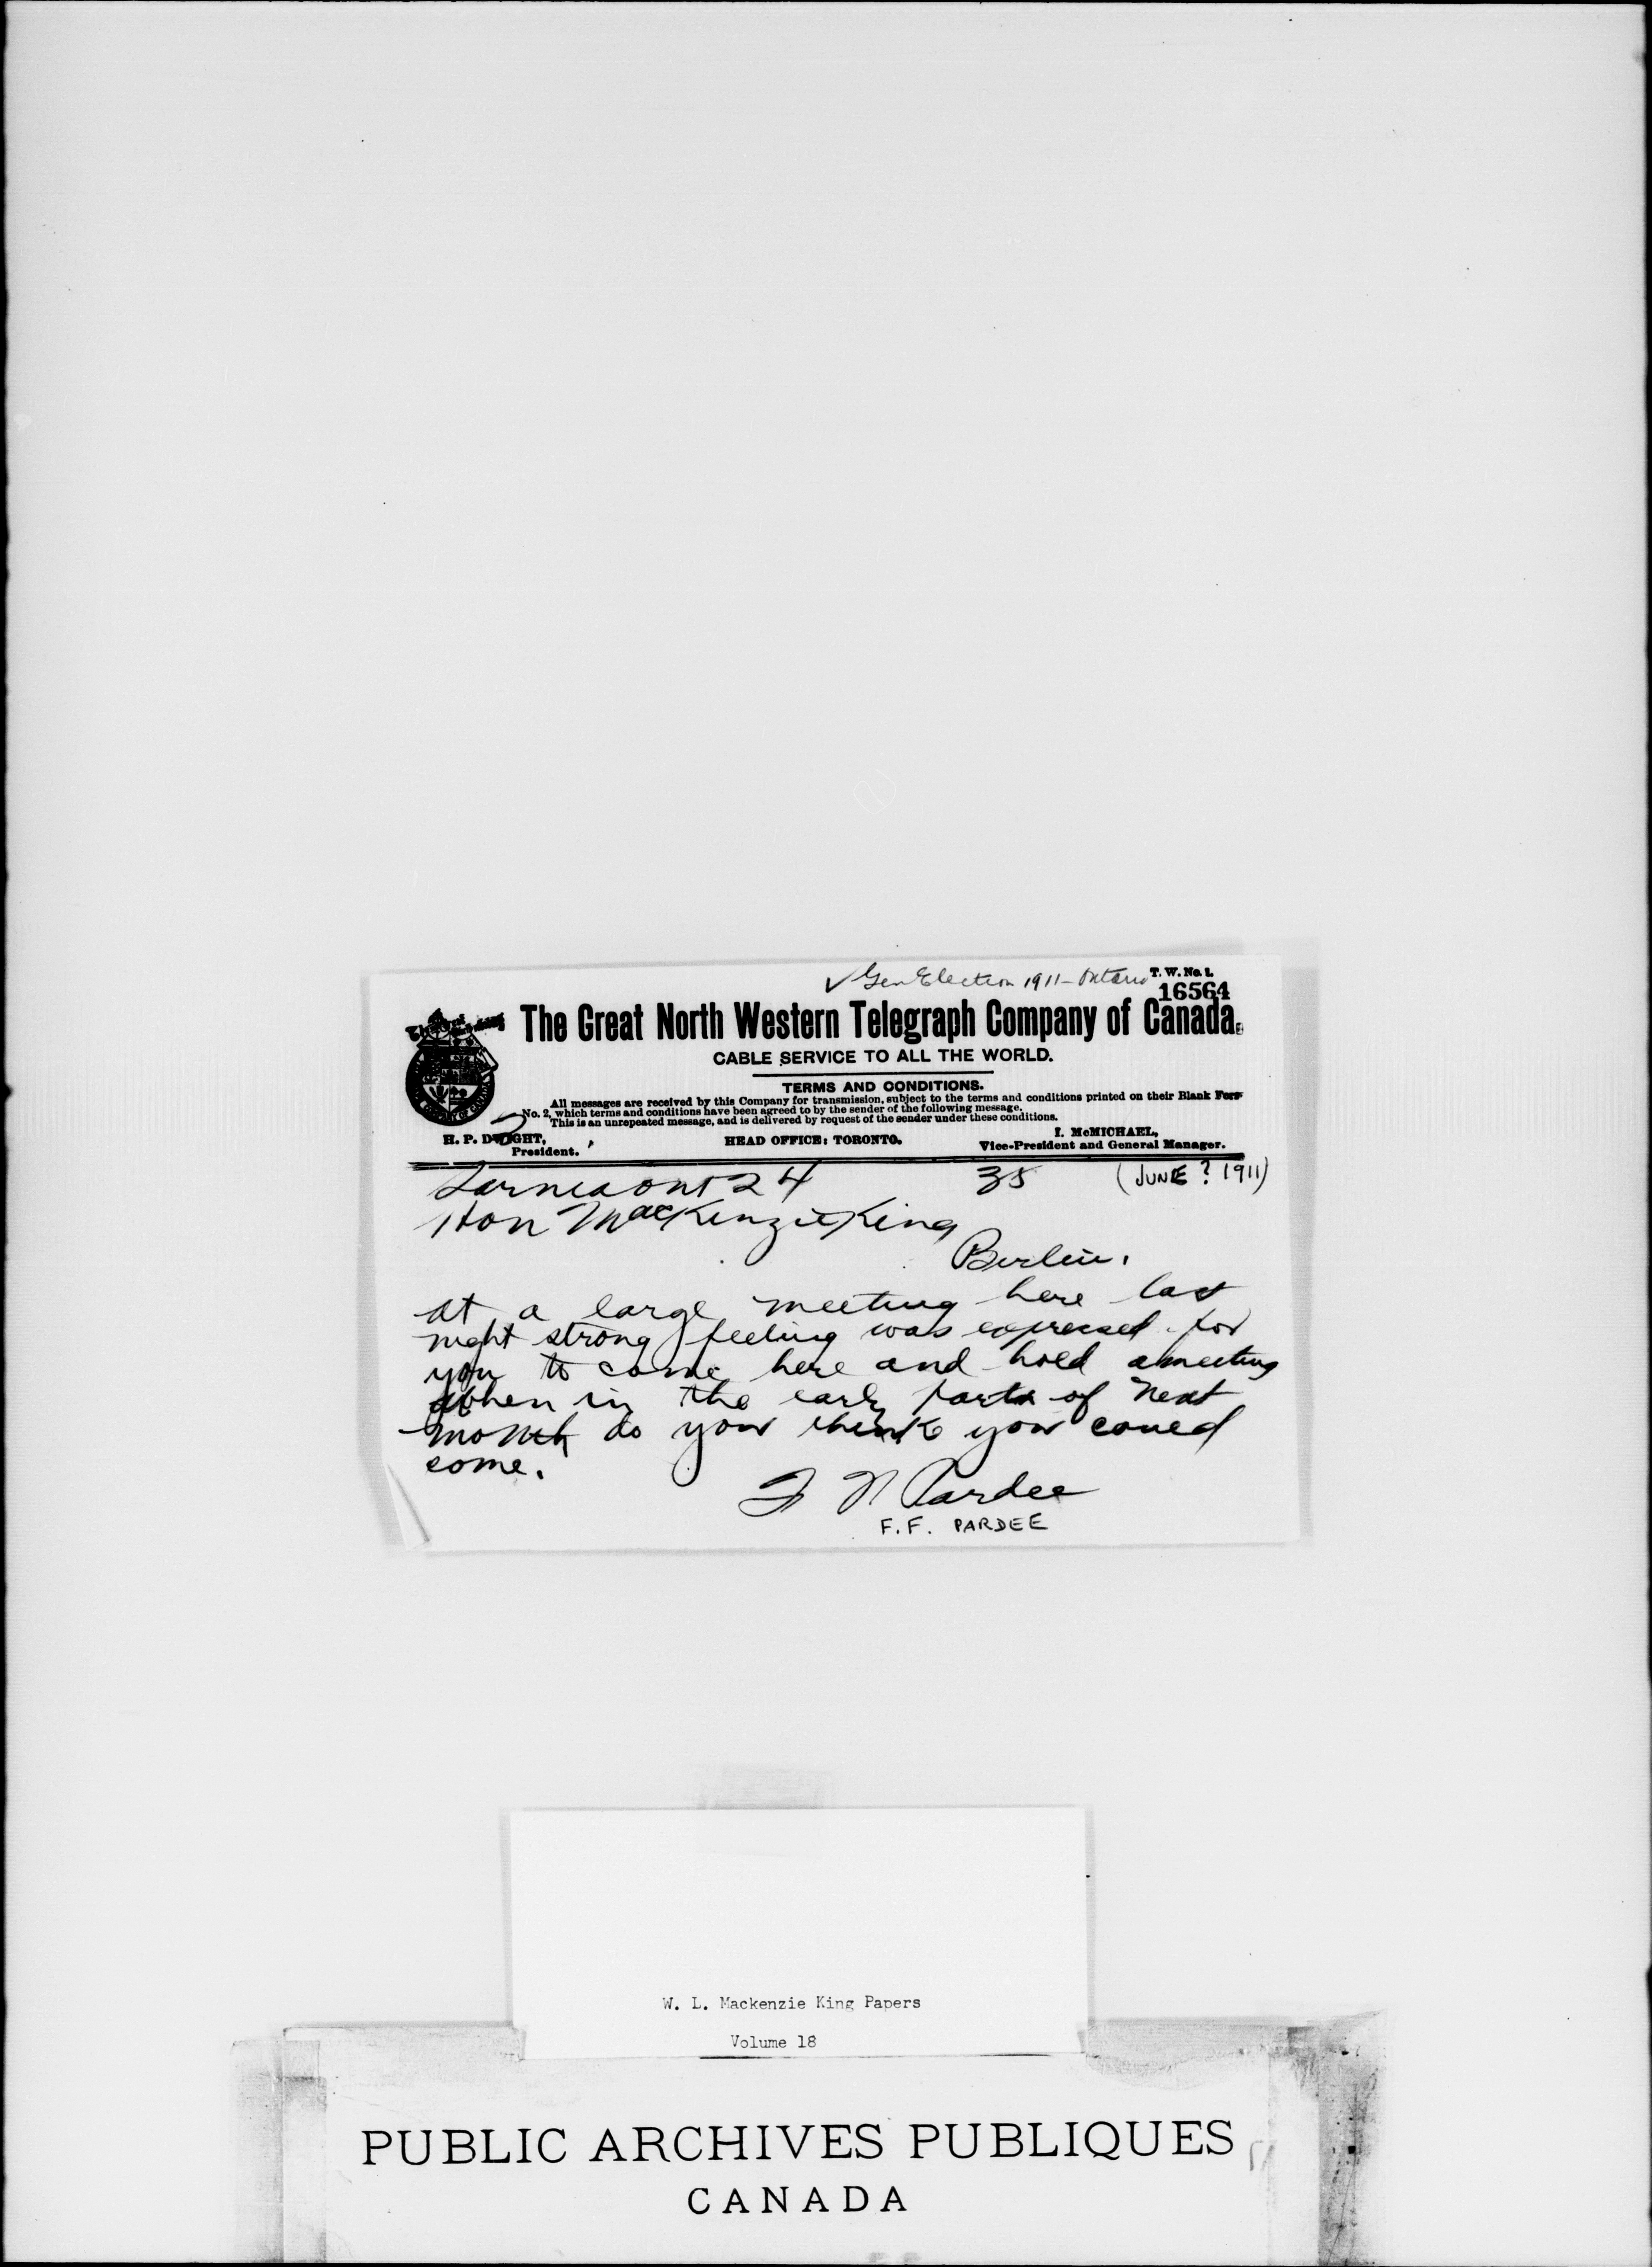 ✓ Gen Election 1911 - Ontario
T. W. No. 1.
16564
The Great North Western Telegraph Company of Canada.
CABLE SERVICE TO ALL THE WORLD.
TERMS AND CONDITIONS.
All messages are received by this Company for transmission, subject to the terms and conditions printed on their Blank Form
No. 2, which terms and conditions have been agreed to by the sender of the following message.
This is an unrepeated message, and is delivered by request of the sender under these conditions.
H. P. DWIGHT, President.
HEAD OFFICE: TORONTO.
I. McMICHAEL, Vice-President and General Manager.
Sarnia Ont 24 35 (JUNE ? 1911)
Hon MacKenzie King
Berlin.
At a large meeting here last
night strong feeling was expressed for
you to come here and hold a meeting
when in the early part of next
month do you think you could
come.
F N Pardee
F.F. PARDEE
W. L. Mackenzie King Papers
Volume 18
PUBLIC ARCHIVES PUBLIQUES
CANADA